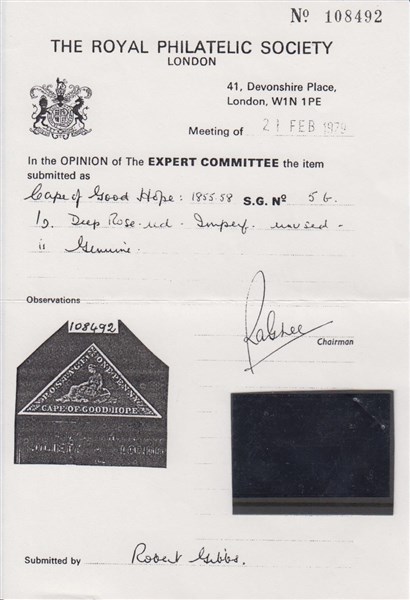 Nº 108492
THE ROYAL PHILATELIC SOCIETY
LONDON
41, Devonshire Place,
London, W1N 1PE
Meeting of 21 FEB 1979
In the OPINION of The EXPERT COMMITTEE the item
submitted as
Cape of Good Hope: 1855-58 S.G. Nº 5b.
1d. Deep Rose-red. Imperf. unused -
is Genuine.
Observations
Chairman
108492
POSTAGE ONE PENNY
CAPE OF GOOD HOPE
Submitted by Robert Gibbs.